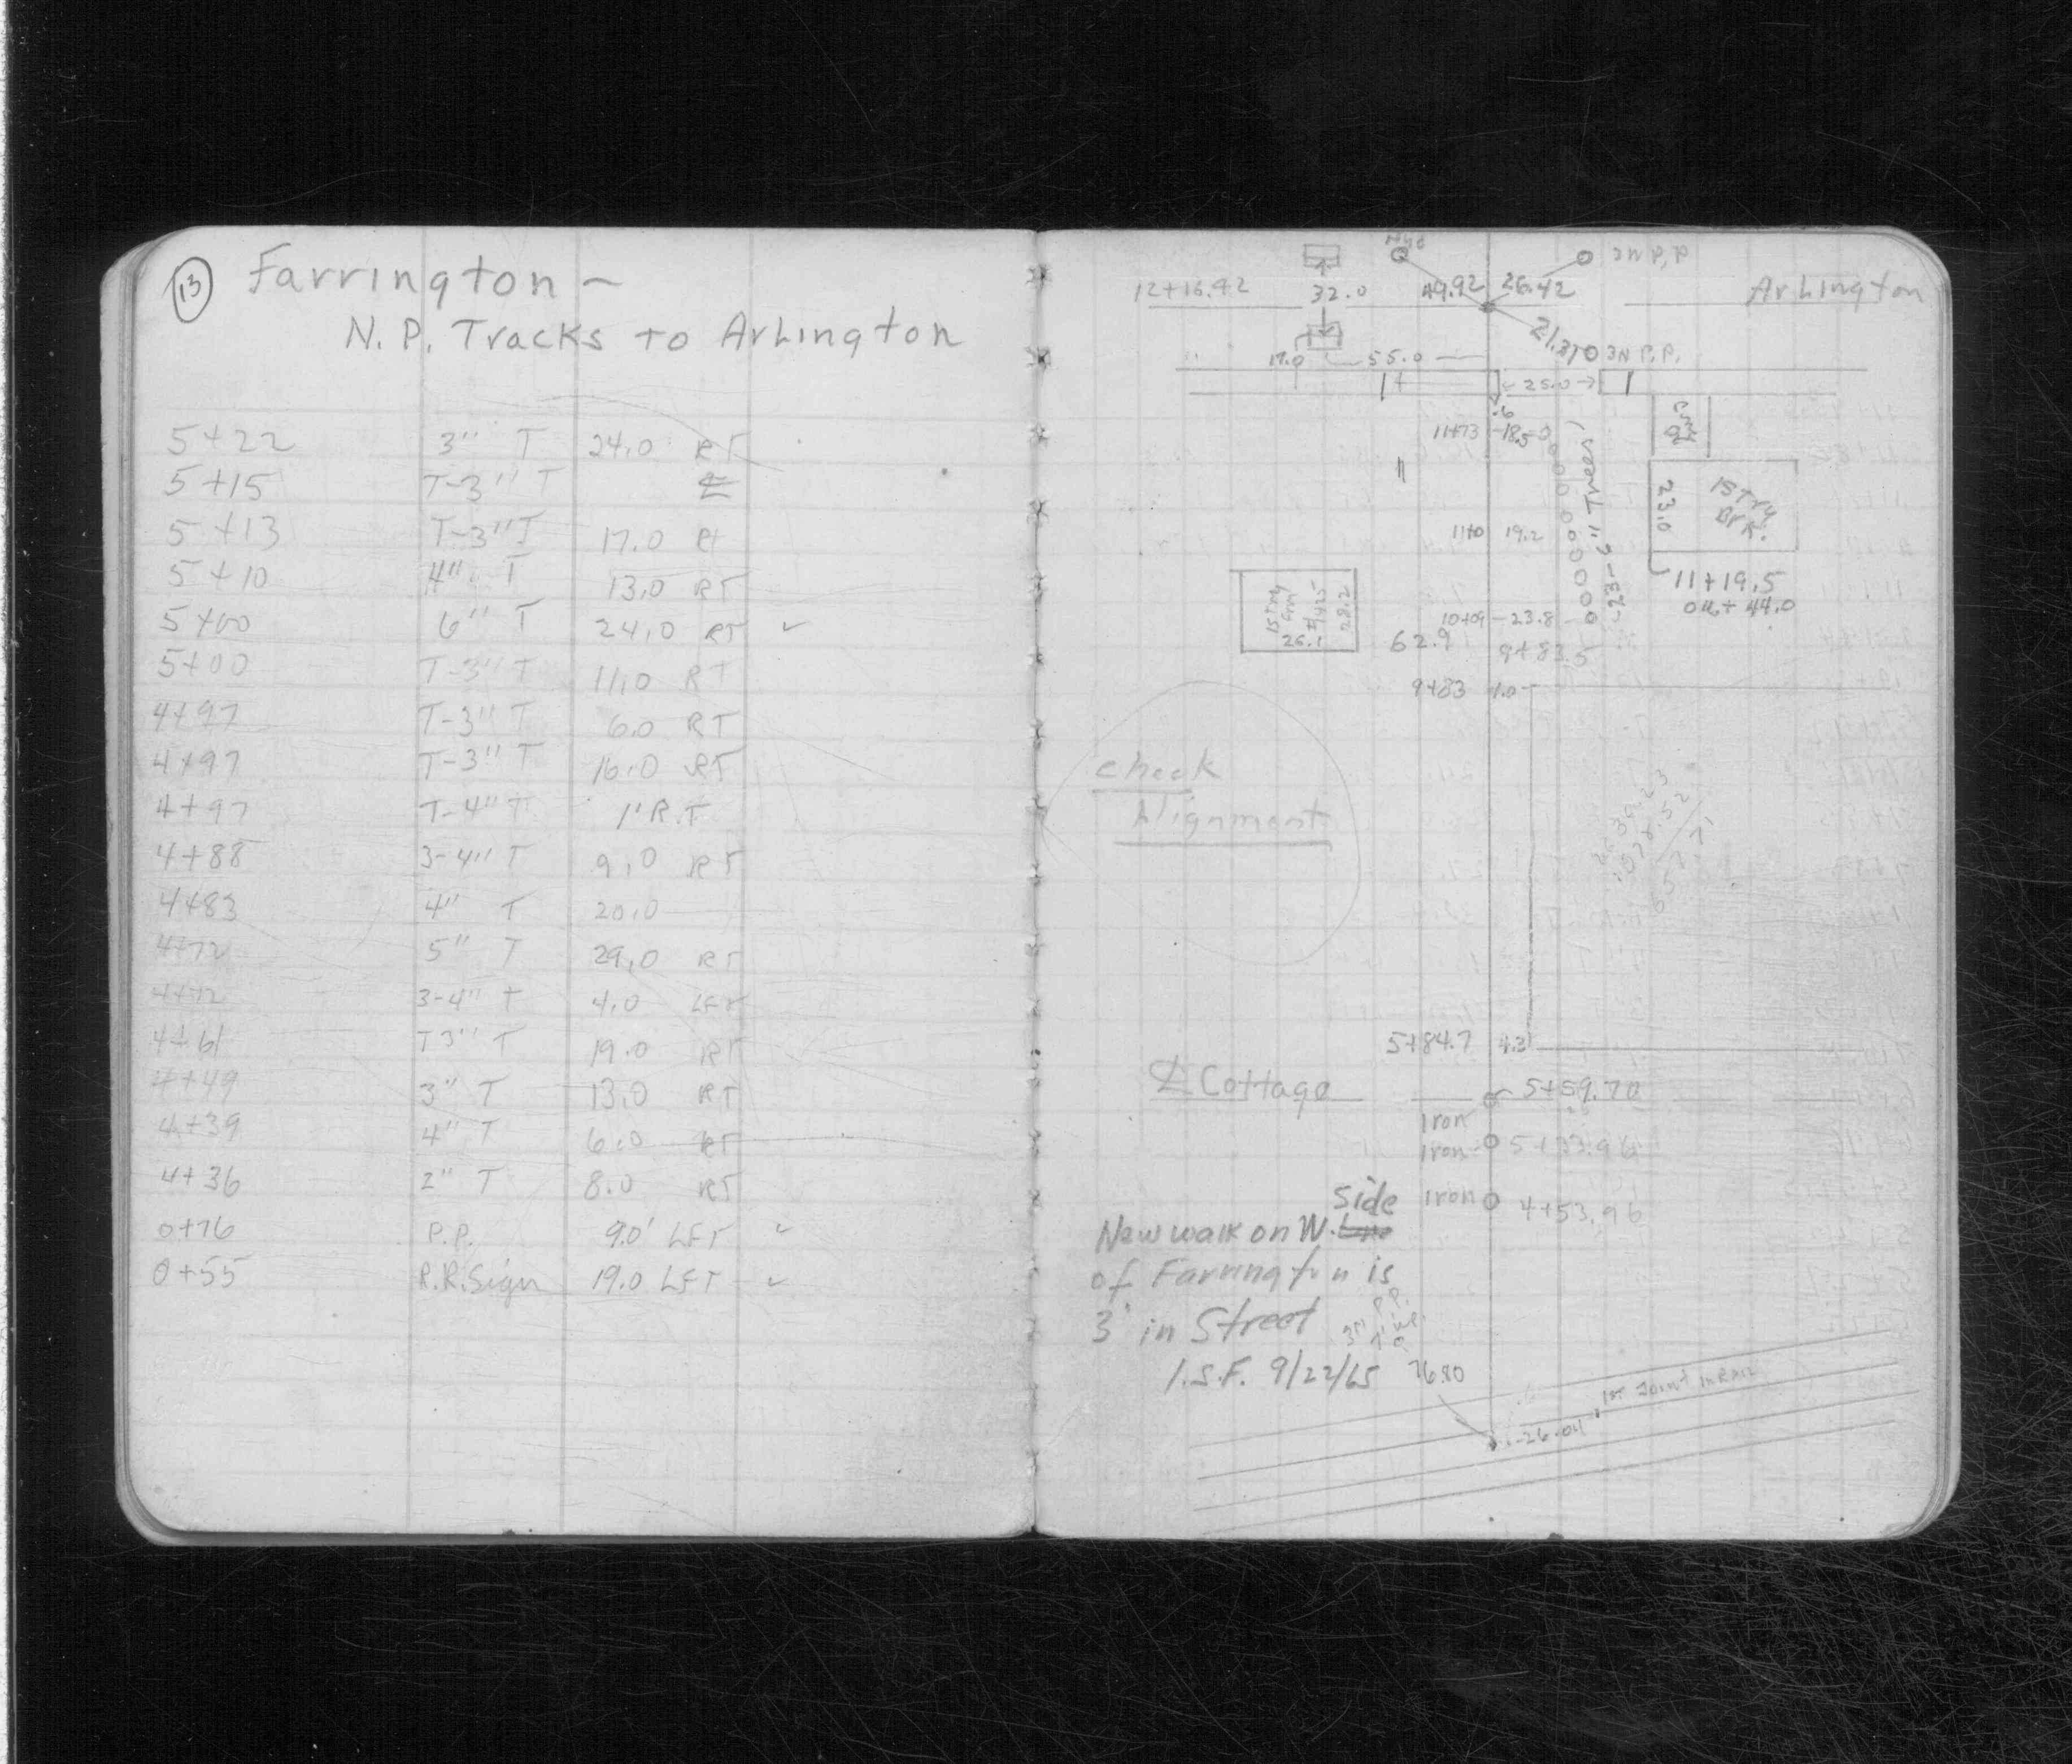 13 Farrington -
N.P. Tracks to Arlington
5+22 3" T 24.0 RT
5+15 T-3" T ℄
5+13 T-3" T 17.0 Rt
5+10 4" T 13.0 RT
5+00 6" T 24.0 RT ✓
5+00 T-3" T 11.0 RT
4+97 T-3" T 6.0 RT
4+97 T-3" T 16.0 RT
4+97 T-4" T 1' R.T
4+88 3-4" T 9.0 RT
4+83 4" T 20.0
4+72 5" T 29.0 RT
4+72 3-4" T 4.0 LFT
4+61 T3" T 19.0 RT
4+49 3" T 13.0 RT
4+39 4" T 6.0 RT
4+36 2" T 8.0 RT
0+76 P.P. 9.0' LFT ✓
0+55 R.R. Sign 19.0 LFT ✓
Hyd
12+16.42 32.0 49.92 26.42 Arlington
21.37 3N P.P.
17.0 55.0
25.0
.6
11+73 18.5
23-6" Trees
1 Stry Brk.
23.0
11+0 19.2
11+19.5
out 44.0
1 Stry
26.1
28.2
10+09 23.8
62.9 9+83.5
9+83 1.0
Check
Alignment
5+84.7 4.3
℄ Cottage 5+59.70
Iron
Iron 5+33.96
Iron 4+53.96
Side
New walk on W. Line
of Farrington is
3' in Street
I.S.F. 9/22/65 76.80
26.04 1st Joint in Rail